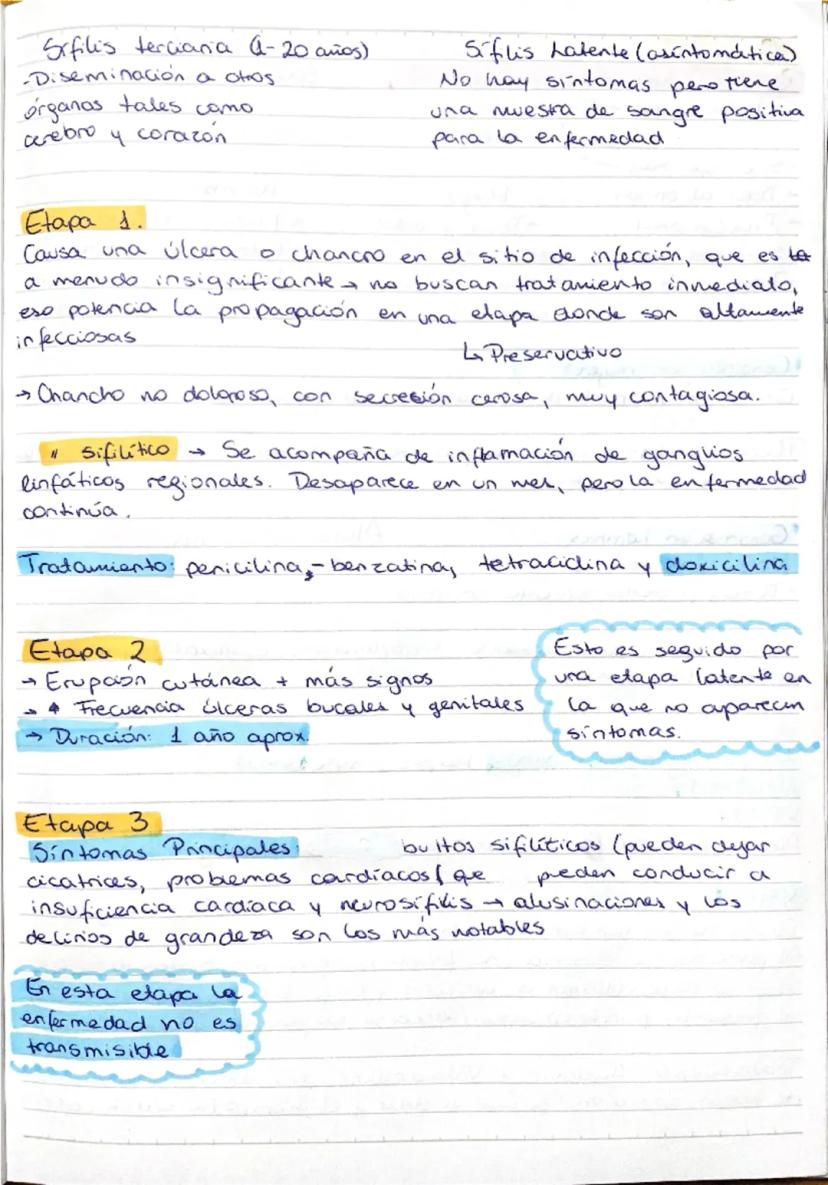 Sífilis terciaria (1-20 años)
-Diseminación a otros
órganos tales como
cerebro y corazón
Sífilis Latente (asíntomática)
No hay síntomas pero tiene
una muestra de sangre positiva
para la enfermedad
Etapa 1.
Causa una úlcera o chancro en el sitio de infección, que es
a menudo insignificante → no buscan tratamiento inmediato,
eso potencia la propagación en una etapa donde son altamente
infecciosas
↳ Preservativo
→ Chancho no doloroso, con secresión cerosa, muy contagiosa.
" sifilítico → Se acompaña de inflamación de ganglios
linfáticos regionales. Desaparece en un mes, pero la enfermedad
continúa.
Tratamiento: penicilina,-benzatina, tetraciclina y doxicilina
Etapa 2
→ Erupción cutánea + más signos
→ ↑ Frecuencia úlceras bucales y genitales
→ Duración: 1 año aprox.
Esto es seguido por
una etapa latente en
la que no aparecen
síntomas.
Etapa 3
Síntomas Principales: bultos sifilíticos (pueden dejar
cicatrices, problemas cardíacos (que pueden conducir a
insuficiencia cardíaca y neurosífilis → alusinaciones y los
delirios de grandeza son los más notables
En esta etapa la
enfermedad no es
transmisible